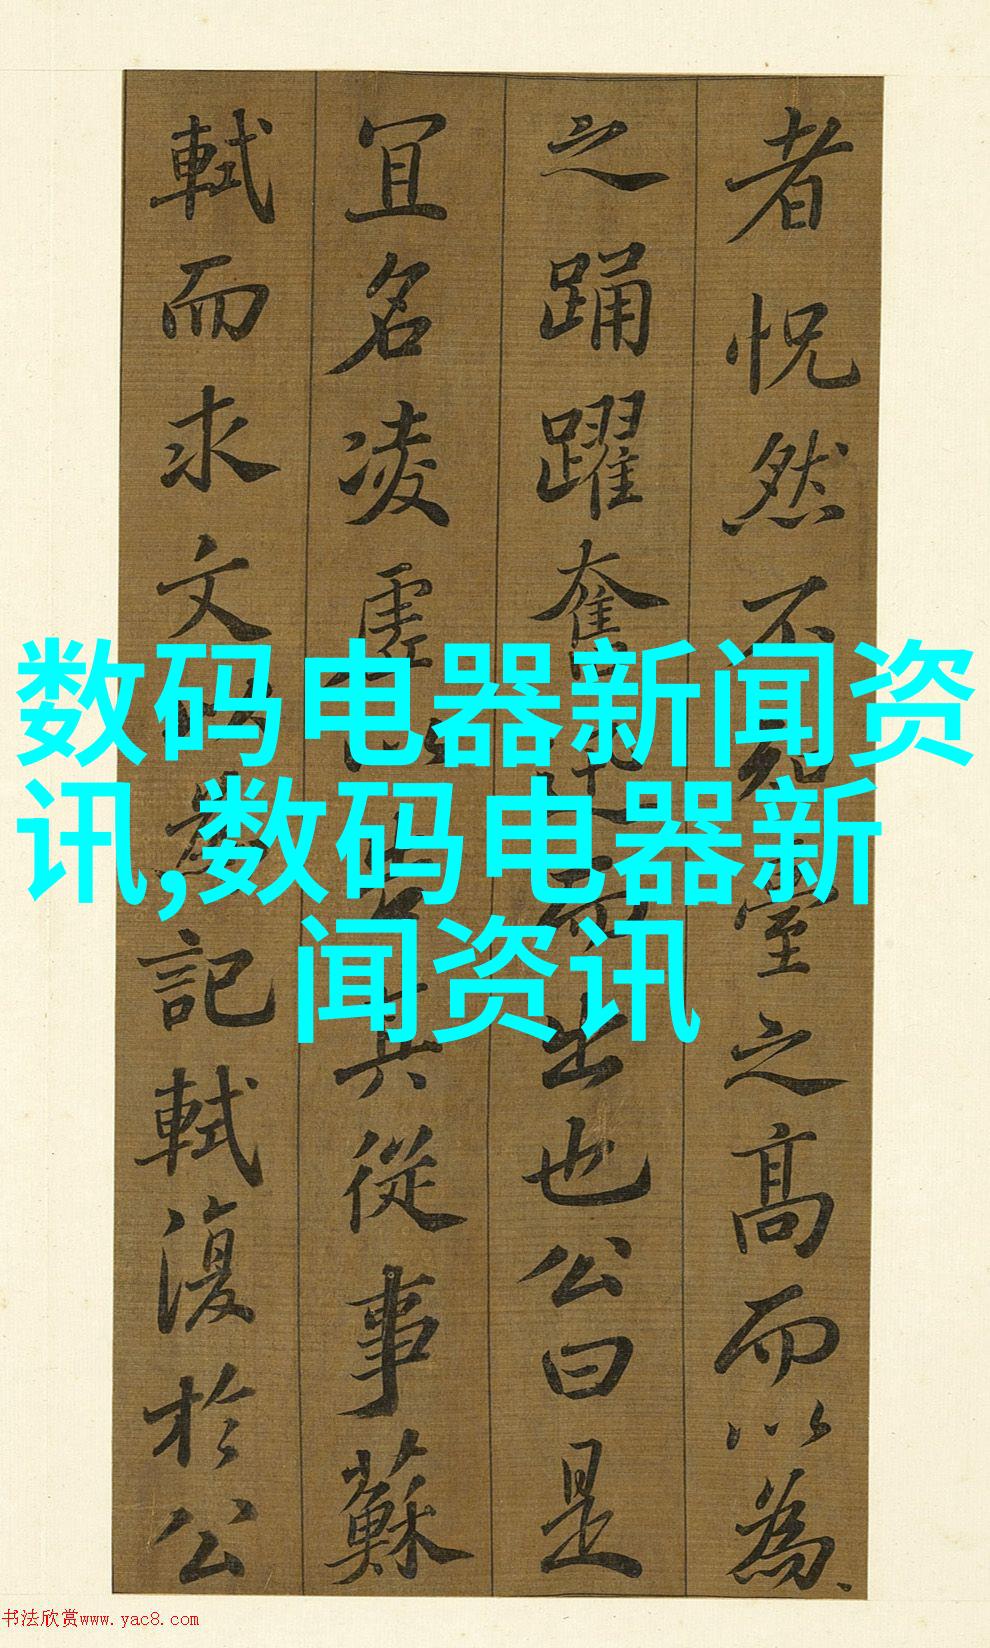 者怳然不知臺之高而以為
之踊躍奮迅而出也公曰是
宜名凌虛以告其從事蘇
軾而求文以為記軾復於公
数码电器新闻资
讯,数码电器新
闻资讯
书法欣赏www.yac8.com